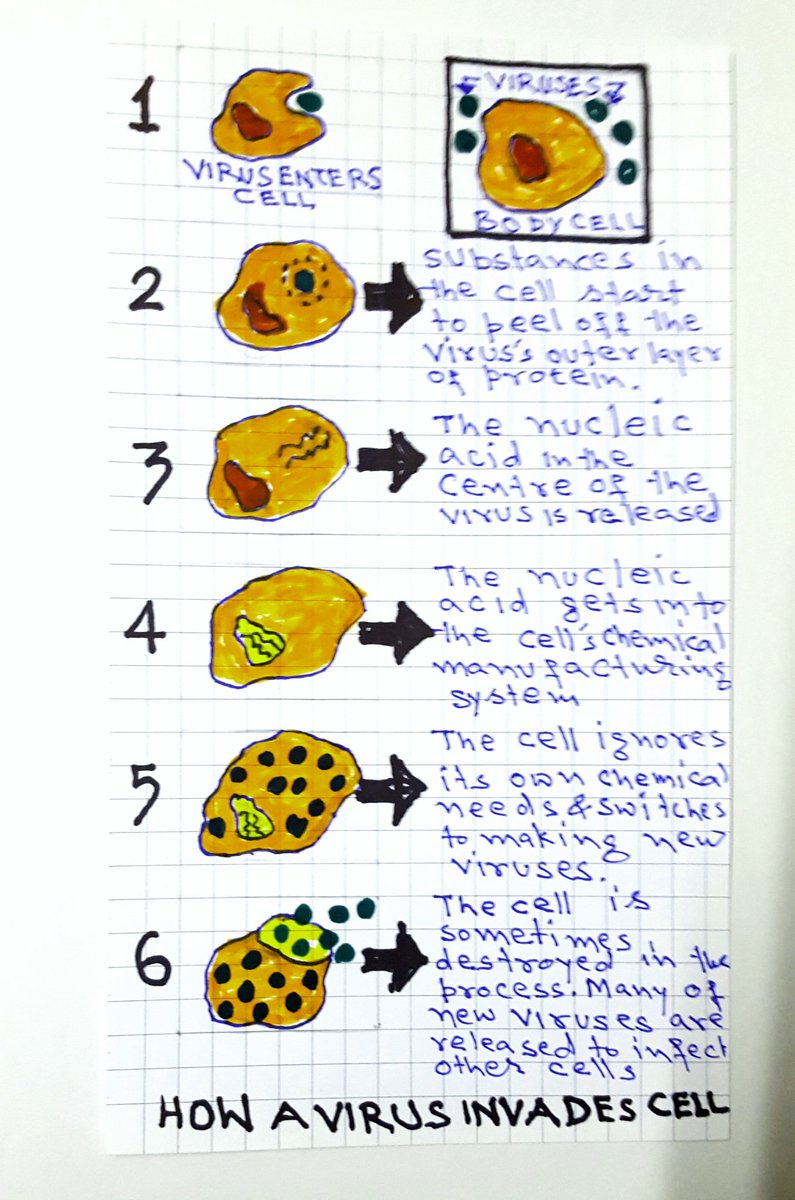 1
VIRUS ENTERS
CELL
VIRUSES
BODY CELL
2
substances in
the cell start
to peel off the
virus's outer layer
of protein.
3
The nucleic
acid in the
centre of the
virus is released
4
The nucleic
acid gets into
the cell's chemical
manufacturing
system
5
The cell ignores
its own chemical
needs, & switches
to making new
viruses.
6
The cell is
sometimes
destroyed in the
process. Many of
new viruses are
released to infect
other cells
HOW A VIRUS INVADES CELL